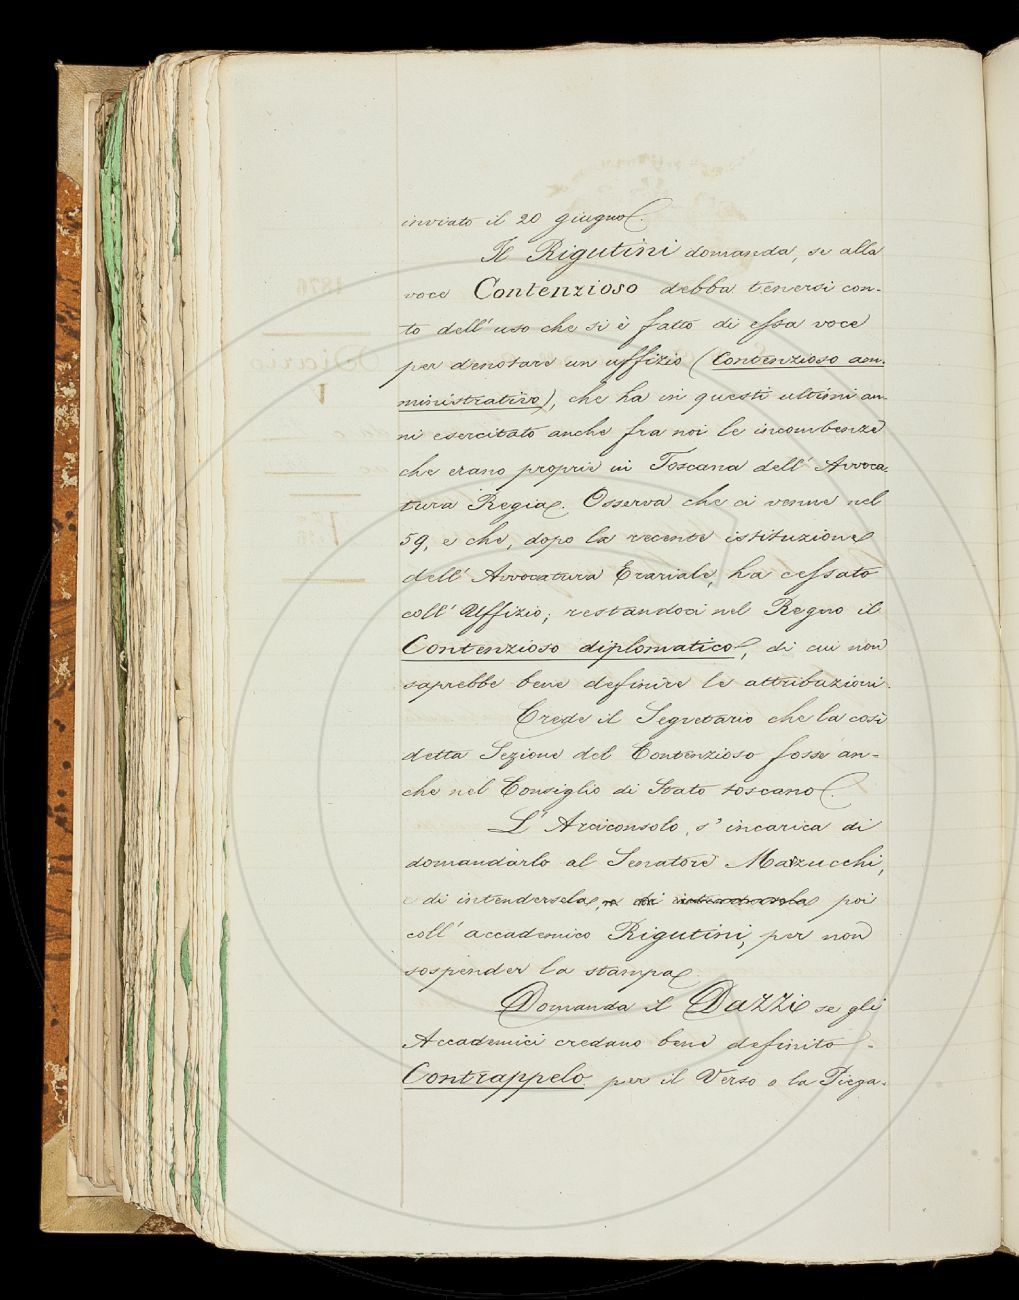 inviato il 20 giugno.
Il Rigutini domanda, se alla
voce Contenzioso debba tenersi con-
to dell' uso che si è fatto di essa voce
per denotare un uffizio (Contenzioso am-
ministrativo), che ha in questi ultimi an-
ni esercitato anche fra noi le incombenze
che erano proprie in Toscana dell' Avvoca-
tura Regia. Osserva che ci venne nel
59, e che, dopo la recente istituzione
dell' Avvocatura Erariale, ha cessato
coll' Uffizio; restandoci nel Regno il
Contenzioso diplomatico, di cui non
saprebbe bene definire le attribuzioni.
Crede il Segretario che la così
detta Sezione del Contenzioso fosse an-
che nel Consiglio di Stato toscano.
L' Arciconsolo s' incarica di
domandarlo al Senatore Mazzucchi,
e di intendersela, e di intendersela poi
coll' accademico Rigutini, per non
sospender la stampa.
Domanda il Dazzi se gli
Accademici credano bene definito
Contrappelo per il Verso o la Piega-